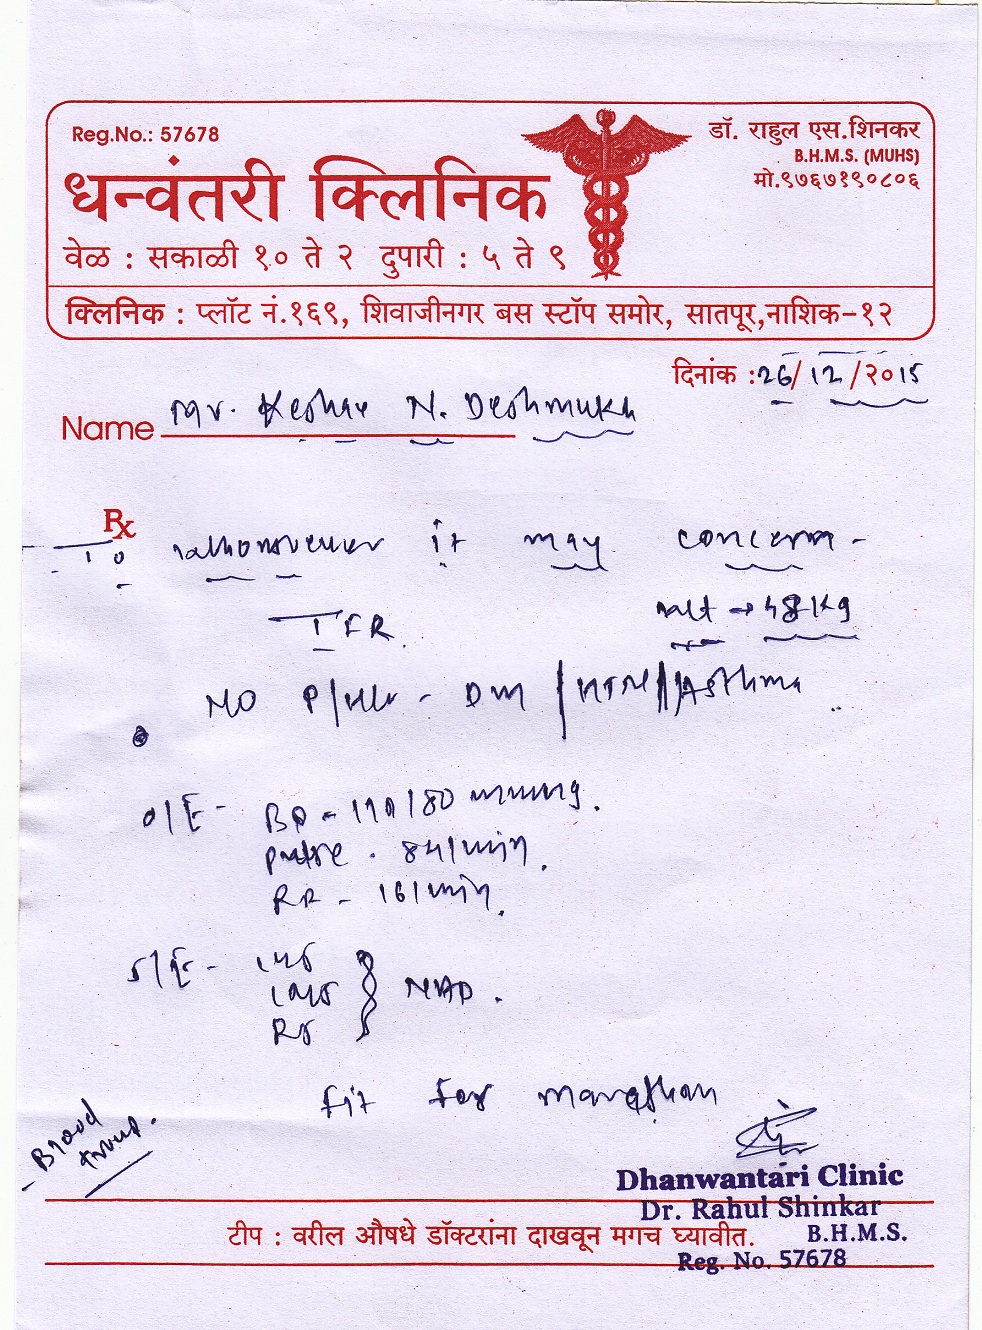 Reg.No.: 57678
डॉ. राहुल एस.शिनकर
B.H.M.S. (MUHS)
मो.९७६७१९०८०६
धन्वंतरी क्लिनिक
वेळ : सकाळी १० ते २ दुपारी : ५ ते ९
क्लिनिक : प्लॉट नं.१६९, शिवाजीनगर बस स्टॉप समोर, सातपूर,नाशिक-१२
दिनांक :26/12/२०15
Name Mr. Keshav N. Deshmukh
Rx
To it may concern -
wt → 48 kg
NO P/H/o - DM /HTN//Asthma
O/E - BP - 110/80 mmHg.
pulse . 84/min.
RR - 16/min.
S/E - CVS
CNS NAD.
RS
fit for marathon
Blood Group.
Dhanwantari Clinic
Dr. Rahul Shinkar
B.H.M.S.
Reg. No. 57678
टीप : वरील औषधे डॉक्टरांना दाखवून मगच घ्यावीत.